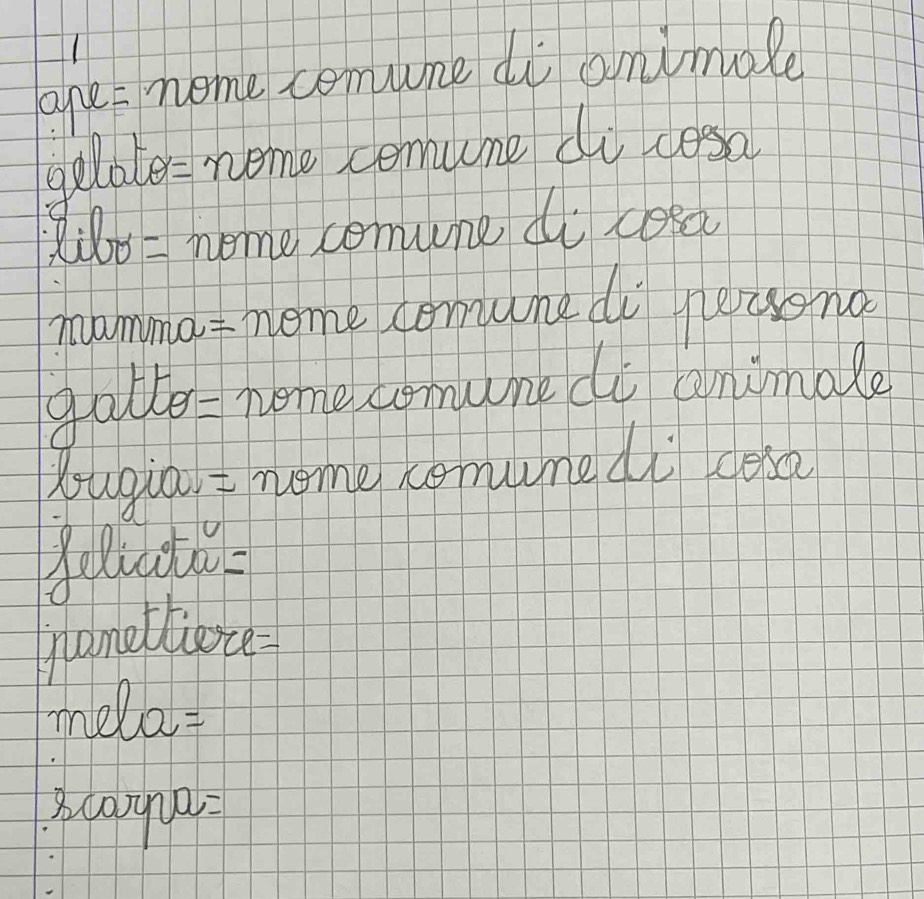 1
ape= nome comune di animale
gelato= nome comune di cosa
libo= nome comune di cosa
mamma= nome comune di persona
gatto= nome comune di animale
bugia= nome comune di cosa
felicità=
panettiere=
mela=
scarpa=